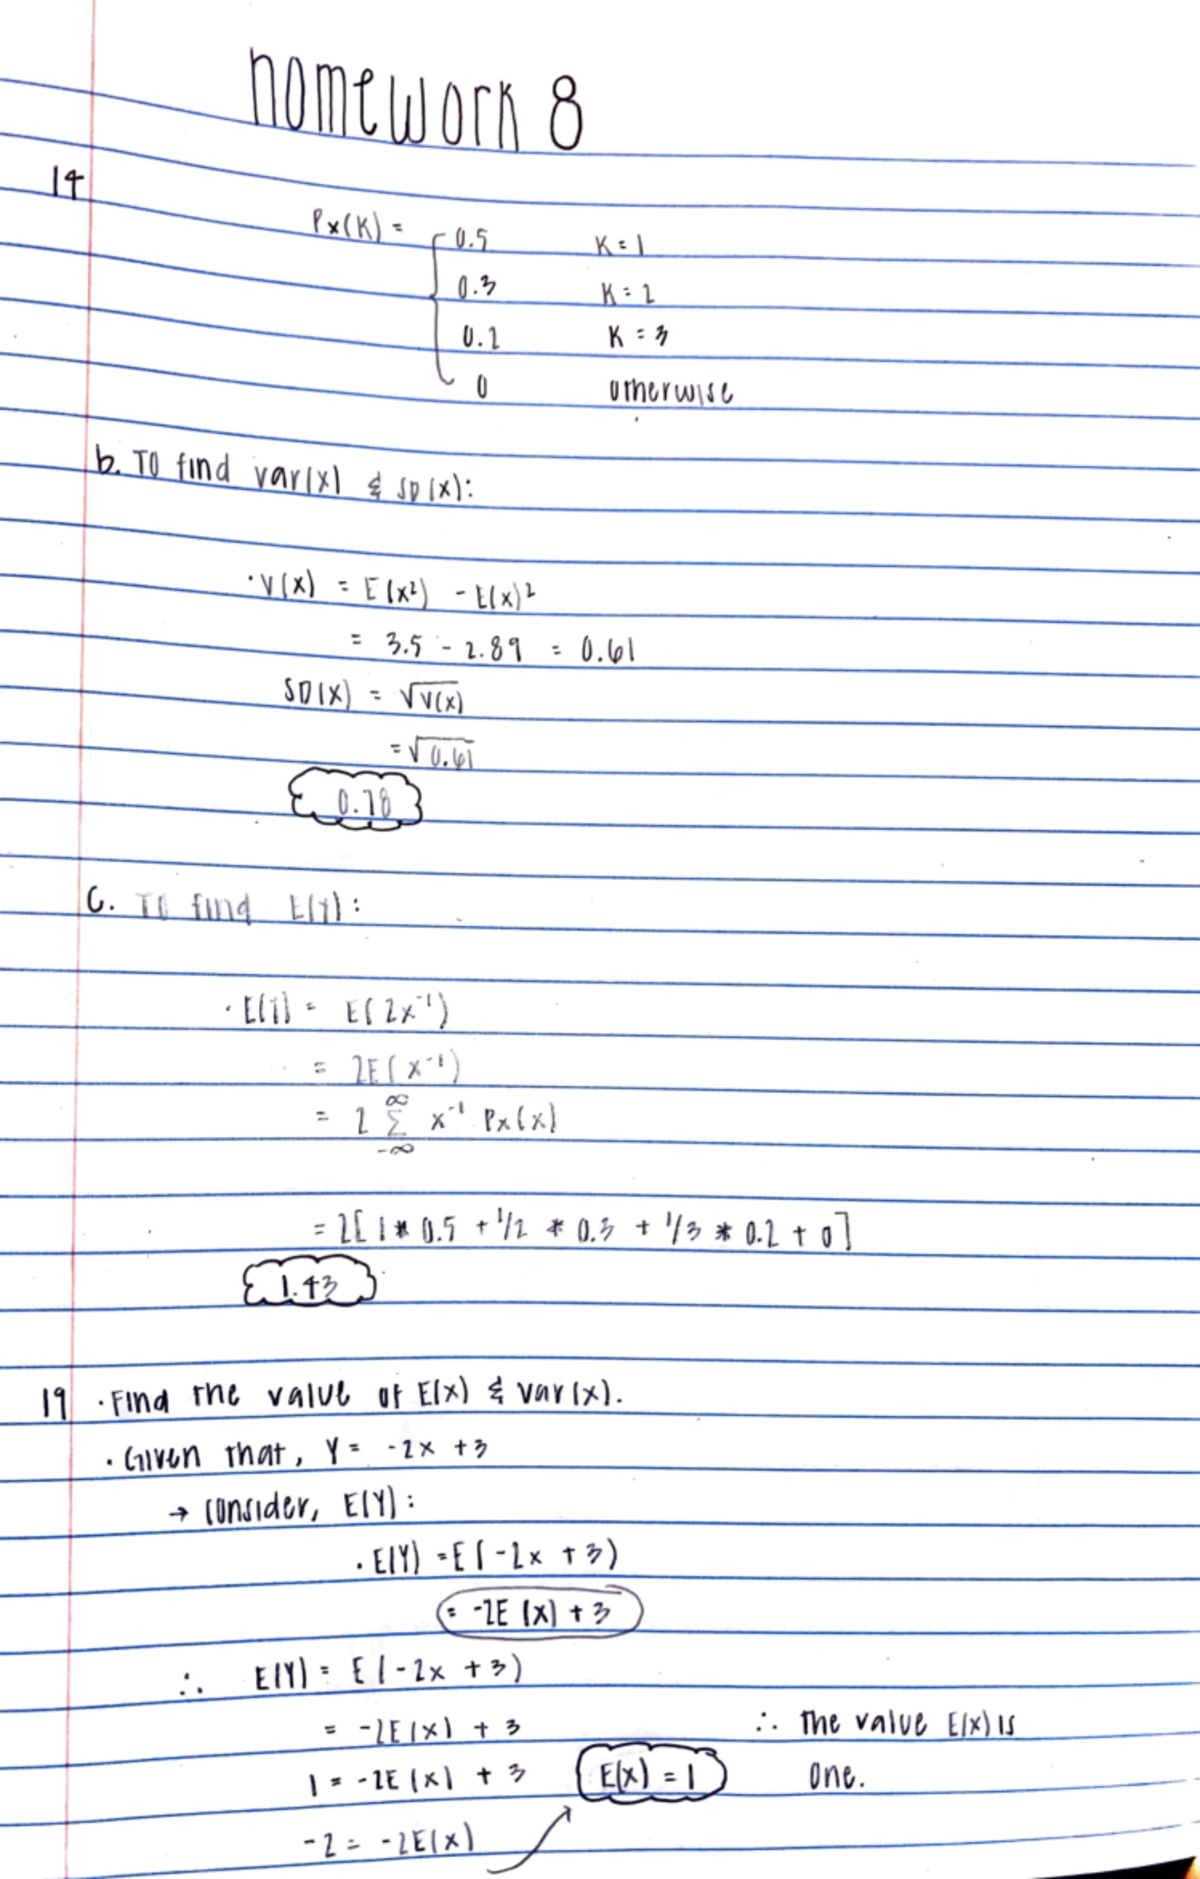 homework 8
14
Px(K) = { 0.5 K = 1
0.3 K = 2
0.2 K = 3
0 otherwise
b. To find var(x) & SD(x):
· V(x) = E(x²) - E(x)²
= 3.5 - 2.89 = 0.61
SD(x) = √V(x)
= √0.61
0.78
C. To find E(Y):
· E(Y) = E(2x⁻¹)
= 2E(x⁻¹)
= 2 ∞ Σ -∞ x⁻¹ Px(x)
= 2[1 * 0.5 + 1/2 * 0.3 + 1/3 * 0.2 + 0]
1.43
19 · Find the value of E(x) & var(x).
· Given that, Y = -2x + 3
→ consider, E(Y):
· E(Y) = E(-2x + 3)
= -2E(x) + 3
∴ E(Y) = E(-2x + 3)
= -2E(x) + 3 ∴ The value E(x) is
1 = -2E(x) + 3 E(x) = 1 one.
-2 = -2E(x)